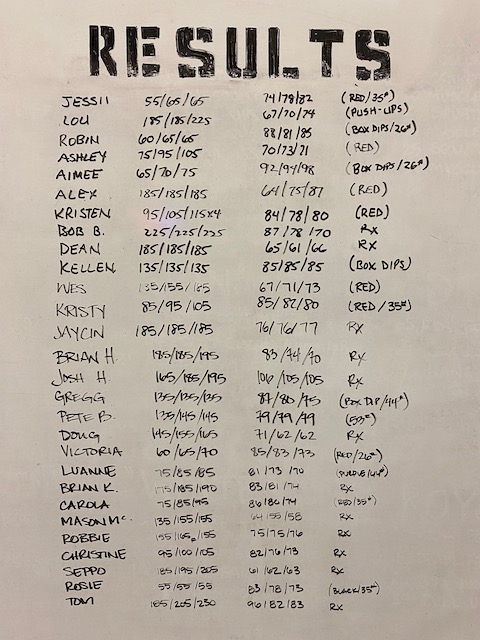 RESULTS
JESSII 55/65/65 74/78/82 (RED/35#)
LOU 185/185/225 67/70/74 (PUSH-UPS)
ROBIN 60/65/65 88/81/85 (BOX DIPS/26#)
ASHLEY 75/95/105 70/73/71 (RED)
AIMEE 65/70/75 92/94/98 (BOX DIPS/26#)
ALEX 185/185/185 64/75/87 (RED)
KRISTEN 95/105/115x4 84/78/80 (RED)
BOB B. 225/225/225 87/78/70 RX
DEAN 185/185/185 65/61/66 RX
KELLEN 135/135/135 85/85/85 (BOX DIPS)
WES 135/155/185 67/71/73 (RED)
KRISTY 85/95/105 85/82/80 (RED/35#)
JAYCIN 185/185/185 76/76/77 RX
BRIAN H. 185/185/195 83/74/70 RX
JOSH H. 165/185/195 106/105/105 RX
GREGG 135/135/135 87/80/75 (BOX DIP/44#)
PETE B. 135/145/145 79/79/79 (53#)
DOUG 145/155/165 71/62/62 RX
VICTORIA 60/65/70 85/83/73 (RED/26#)
LUANNE 75/85/85 81/73/70 (PURPLE/44#)
BRIAN K. 175/185/190 83/81/74 RX
CAROLA 75/85/95 86/80/74 (RED/35#)
MASON Mc. 135/155/155 64/55/58 RX
ROBBIE 155/165/155 75/75/76 RX
CHRISTINE 95/100/105 82/76/73 RX
SEPPO 185/195/205 61/62/63 RX
ROSIE 55/55/55 83/78/73 (BLACK/35#)
TOM 185/205/230 96/82/83 RX